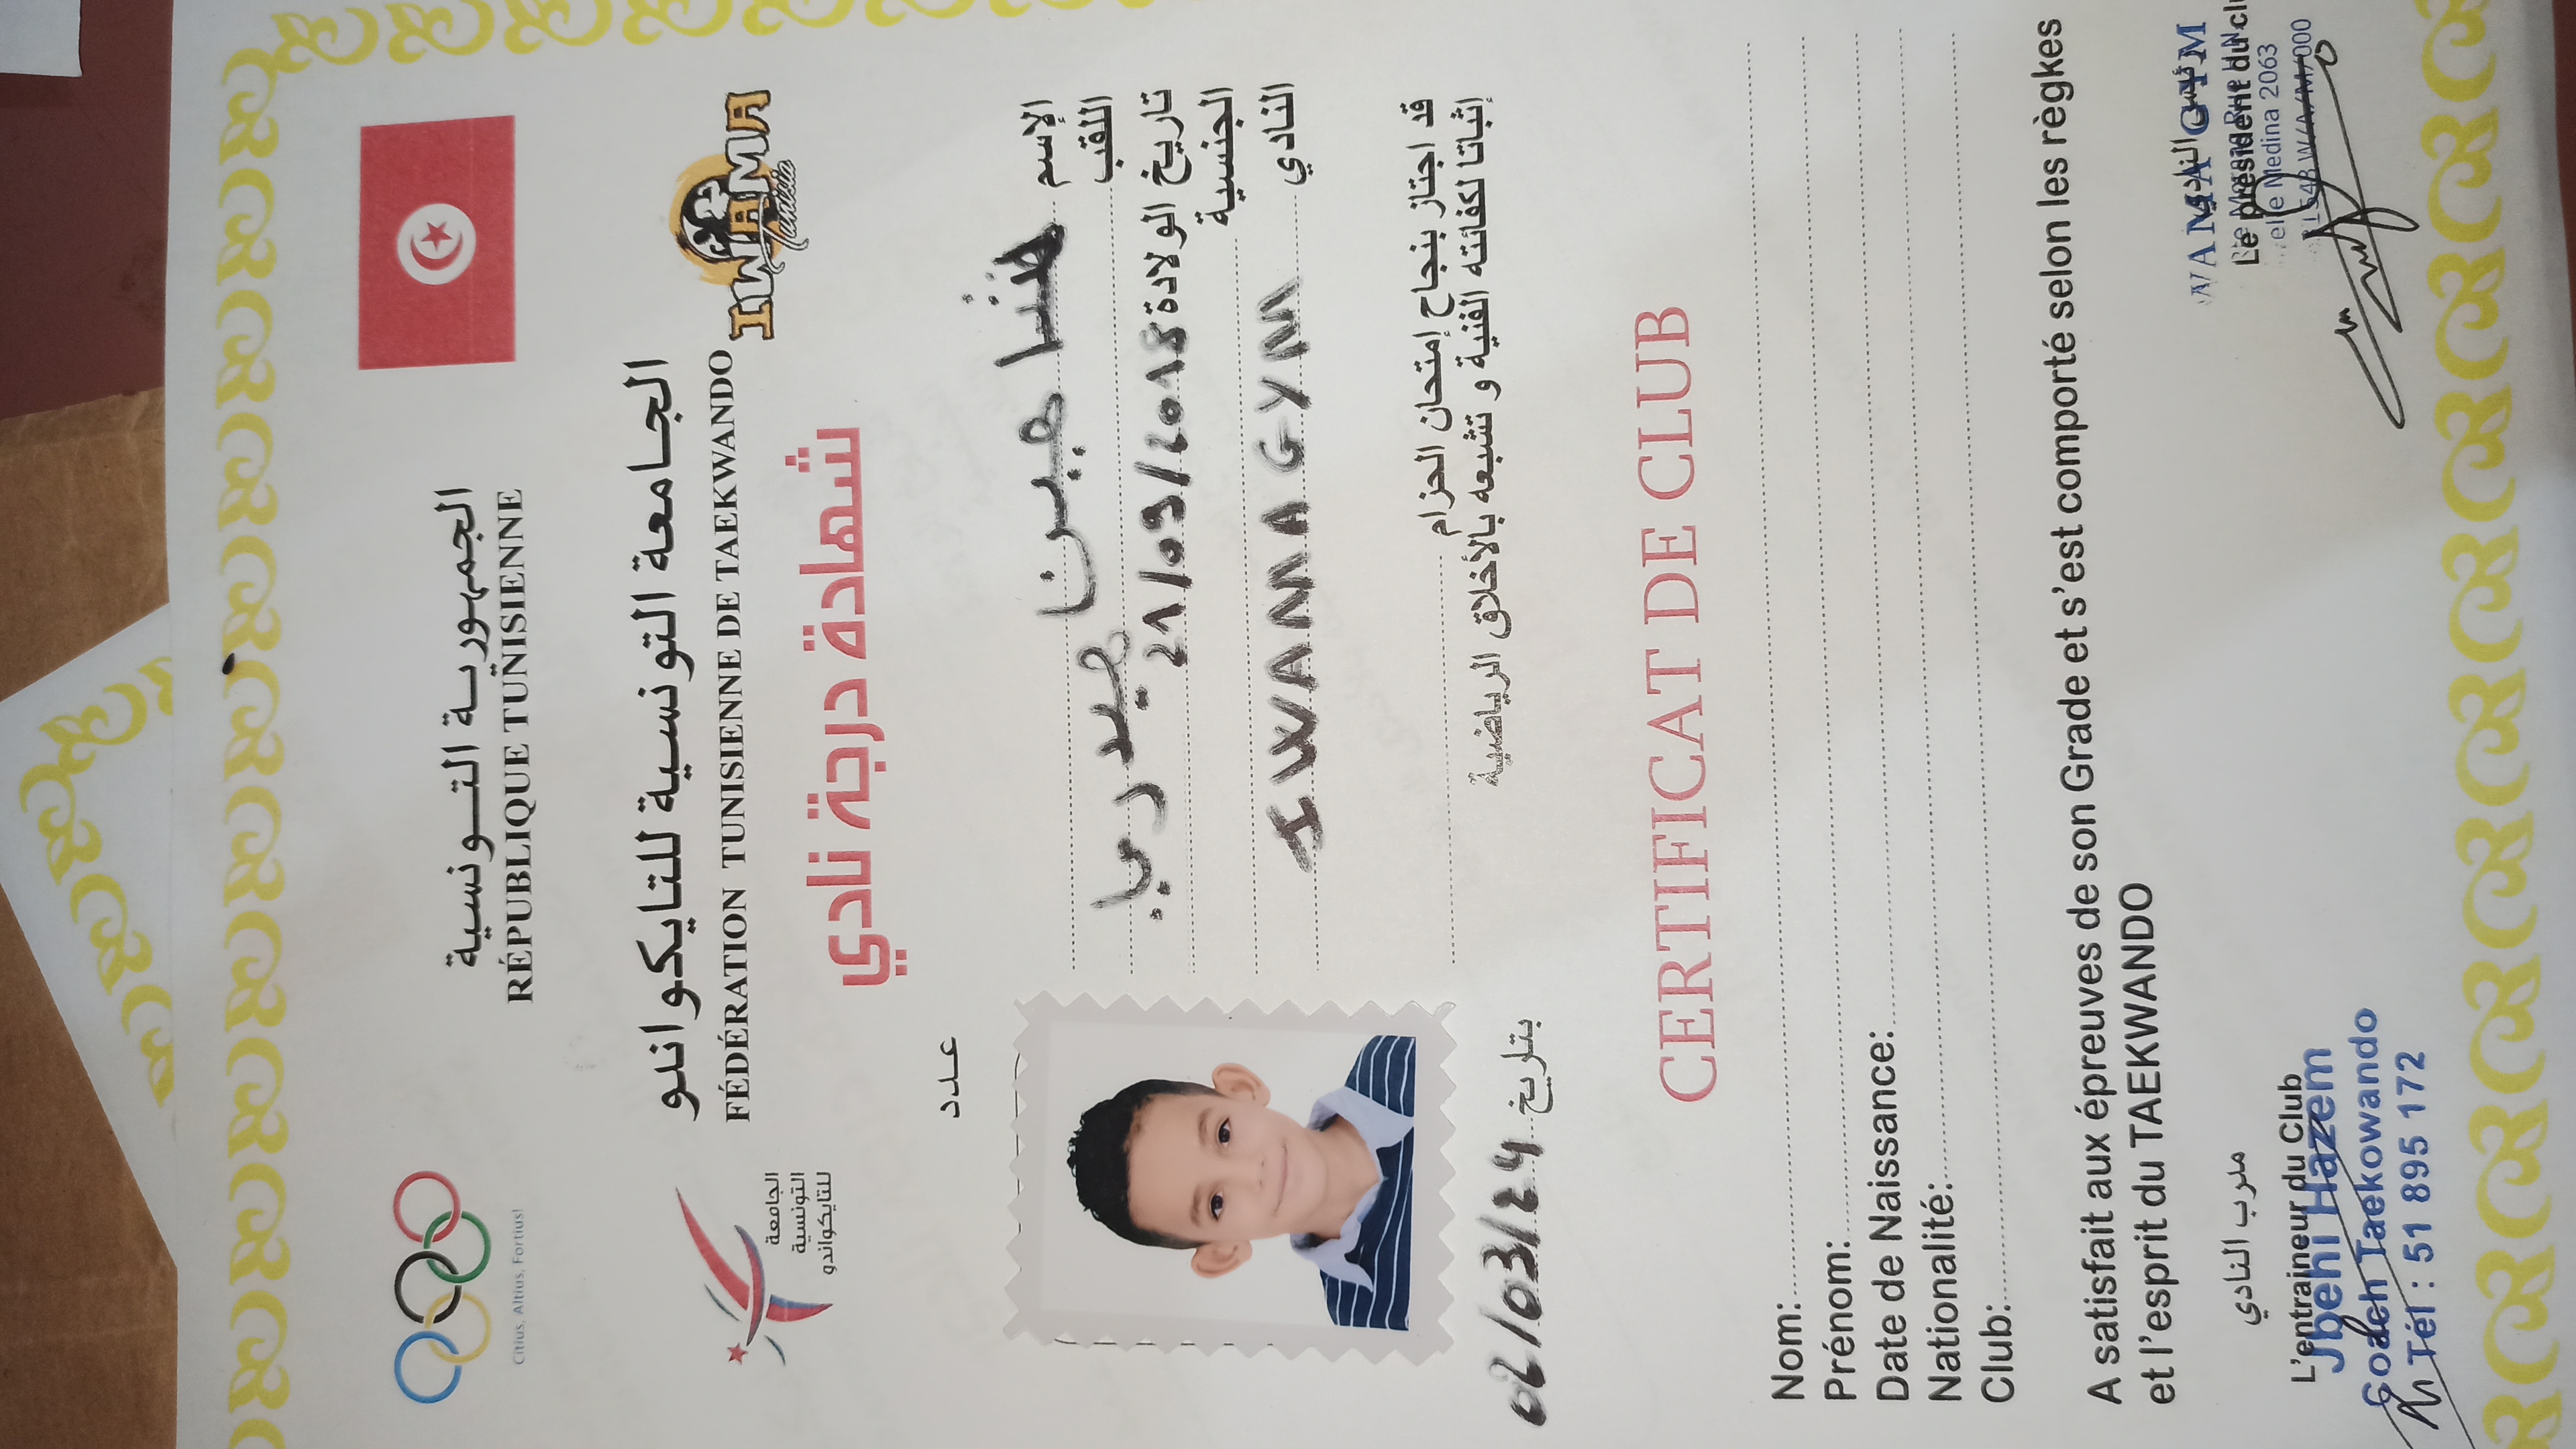 الجمهورية التونسية
RÉPUBLIQUE TUNISIENNE
Citius, Altius, Fortius!
الجامعة التونسية للتايكواندو
FÉDÉRATION TUNISIENNE DE TAEKWANDO
الجامعة
التونسية
للتايكواندو
IWAMA
Tunisia
شهادة درجة نادي
عدد
الإسم
اللقب
تاريخ الولادة 21/09/2018
الجنسية
النادي IWAMA GYM
قد اجتاز بنجاح إمتحان الحزام
إثباتا لكفائته الفنية و تشبعه بالأخلاق الرياضية
بتاريخ 02/03/24
CERTIFICAT DE CLUB
Nom:
Prénom:
Date de Naissance:
Nationalité:
Club:
A satisfait aux épreuves de son Grade et s'est comporté selon les règkes
et l'esprit du TAEKWANDO
مدرب النادي
L'entraineur du Club
Jbehi Hazem
Coach Taekowando
Tél : 51 895 172
WAMA GYM
Le président du clu
elle Medina 2063